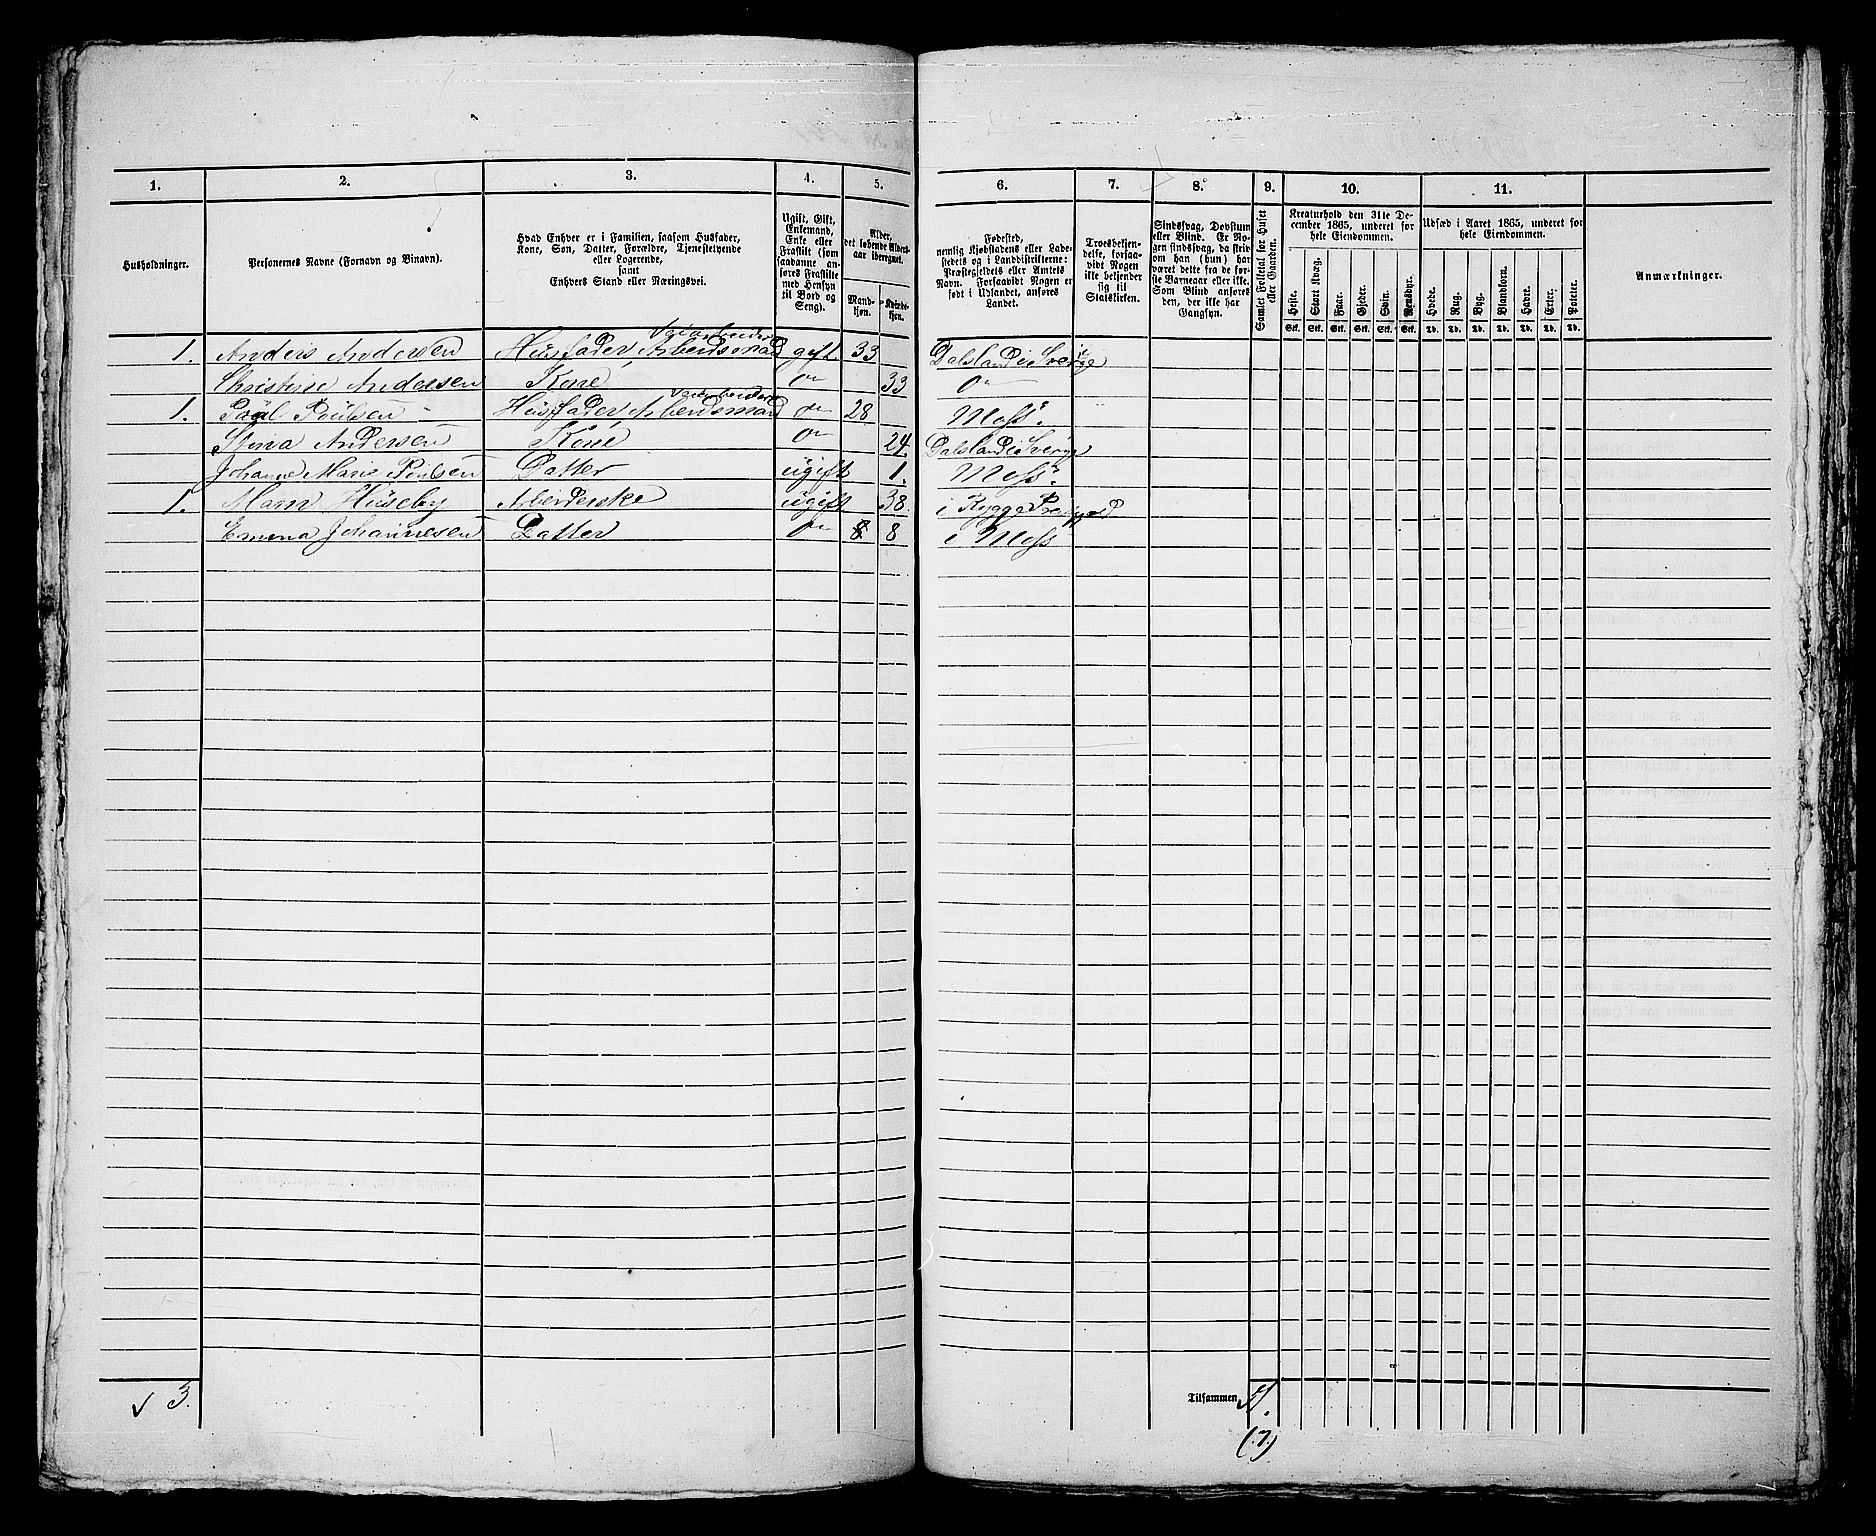 1. 2. 3. 4. 5. 6. 7. 8. 9. 10. 11.
Husholdninger.
Personernes Navne (Fornavn og Binavn).
Hvad Enhver er i Familien, saasom Husfader,
Kone, Søn, Datter, Forældre, Tjenestetyende
eller Logerende,
samt
Enhvers Stand eller Næringsvei.
Ugift, Gift,
Enkemand,
Enke eller
Fraskilt (som
saadanne an-
føres Fraskilte
med Hensyn
til Bord og
Seng).
Alder,
det løbende Alders-
aar iberegnet.
Mand-
kjøn.
Kvinde-
kjøn.
Fødested,
nemlig Kjøbstadens eller Lade-
stedets og i Landdistrikterne:
Præstegjeldets eller Amtets
Navn. Forsaavidt Nogen er
født i Udlandet, anføres
Landet.
Troesbekjen-
delse, forsaa-
vidt Nogen
ikke bekjender
sig til
Statskirken.
Sindssvag, Døvstum
eller Blind. Er No-
gen sindssvag, da skriv
om han (hun) har
været dette fra de før-
ste Barneaar eller ikke.
Som Blind anføres
den, der ikke har
Gangsyn.
Samlet Folketal for Huset
eller Gaarden.
Kreaturhold den 31te De-
cember 1865, underet for
hele Eiendommen.
Heste. Stort Kvæg. Faar. Gjeder. Svin. Rensdyr.
Stk. Stk. Stk. Stk. Stk. Stk.
Udsæd i Aaret 1865, underet for
hele Eiendommen.
Hvede. Rug. Byg. Blandkorn. Havre. Erter. Poteter.
Td. Td. Td. Td. Td. Td. Td.
Anmærkninger.
Veiarbeider
1. Anders Andersen Husfader, Arbeidsmand gift 33 Dalsland i Sverige
Christine Andersen Kone do 33 do
Veiarbeider
1. Poul Poulsen Husfader Arbeidsmand do 28 Moss.
Stina Andersen Kone do 24. Dalsland i Sverige
Johanne Marie Poulsen Datter ugift 1. Moss.
1. Maren Huseby Arbeiderske ugift 38. i Rygge Prestegjeld
Emma Johannesen Datter do 8 8 i Moss
✓ 3. Tilsammen
(7)